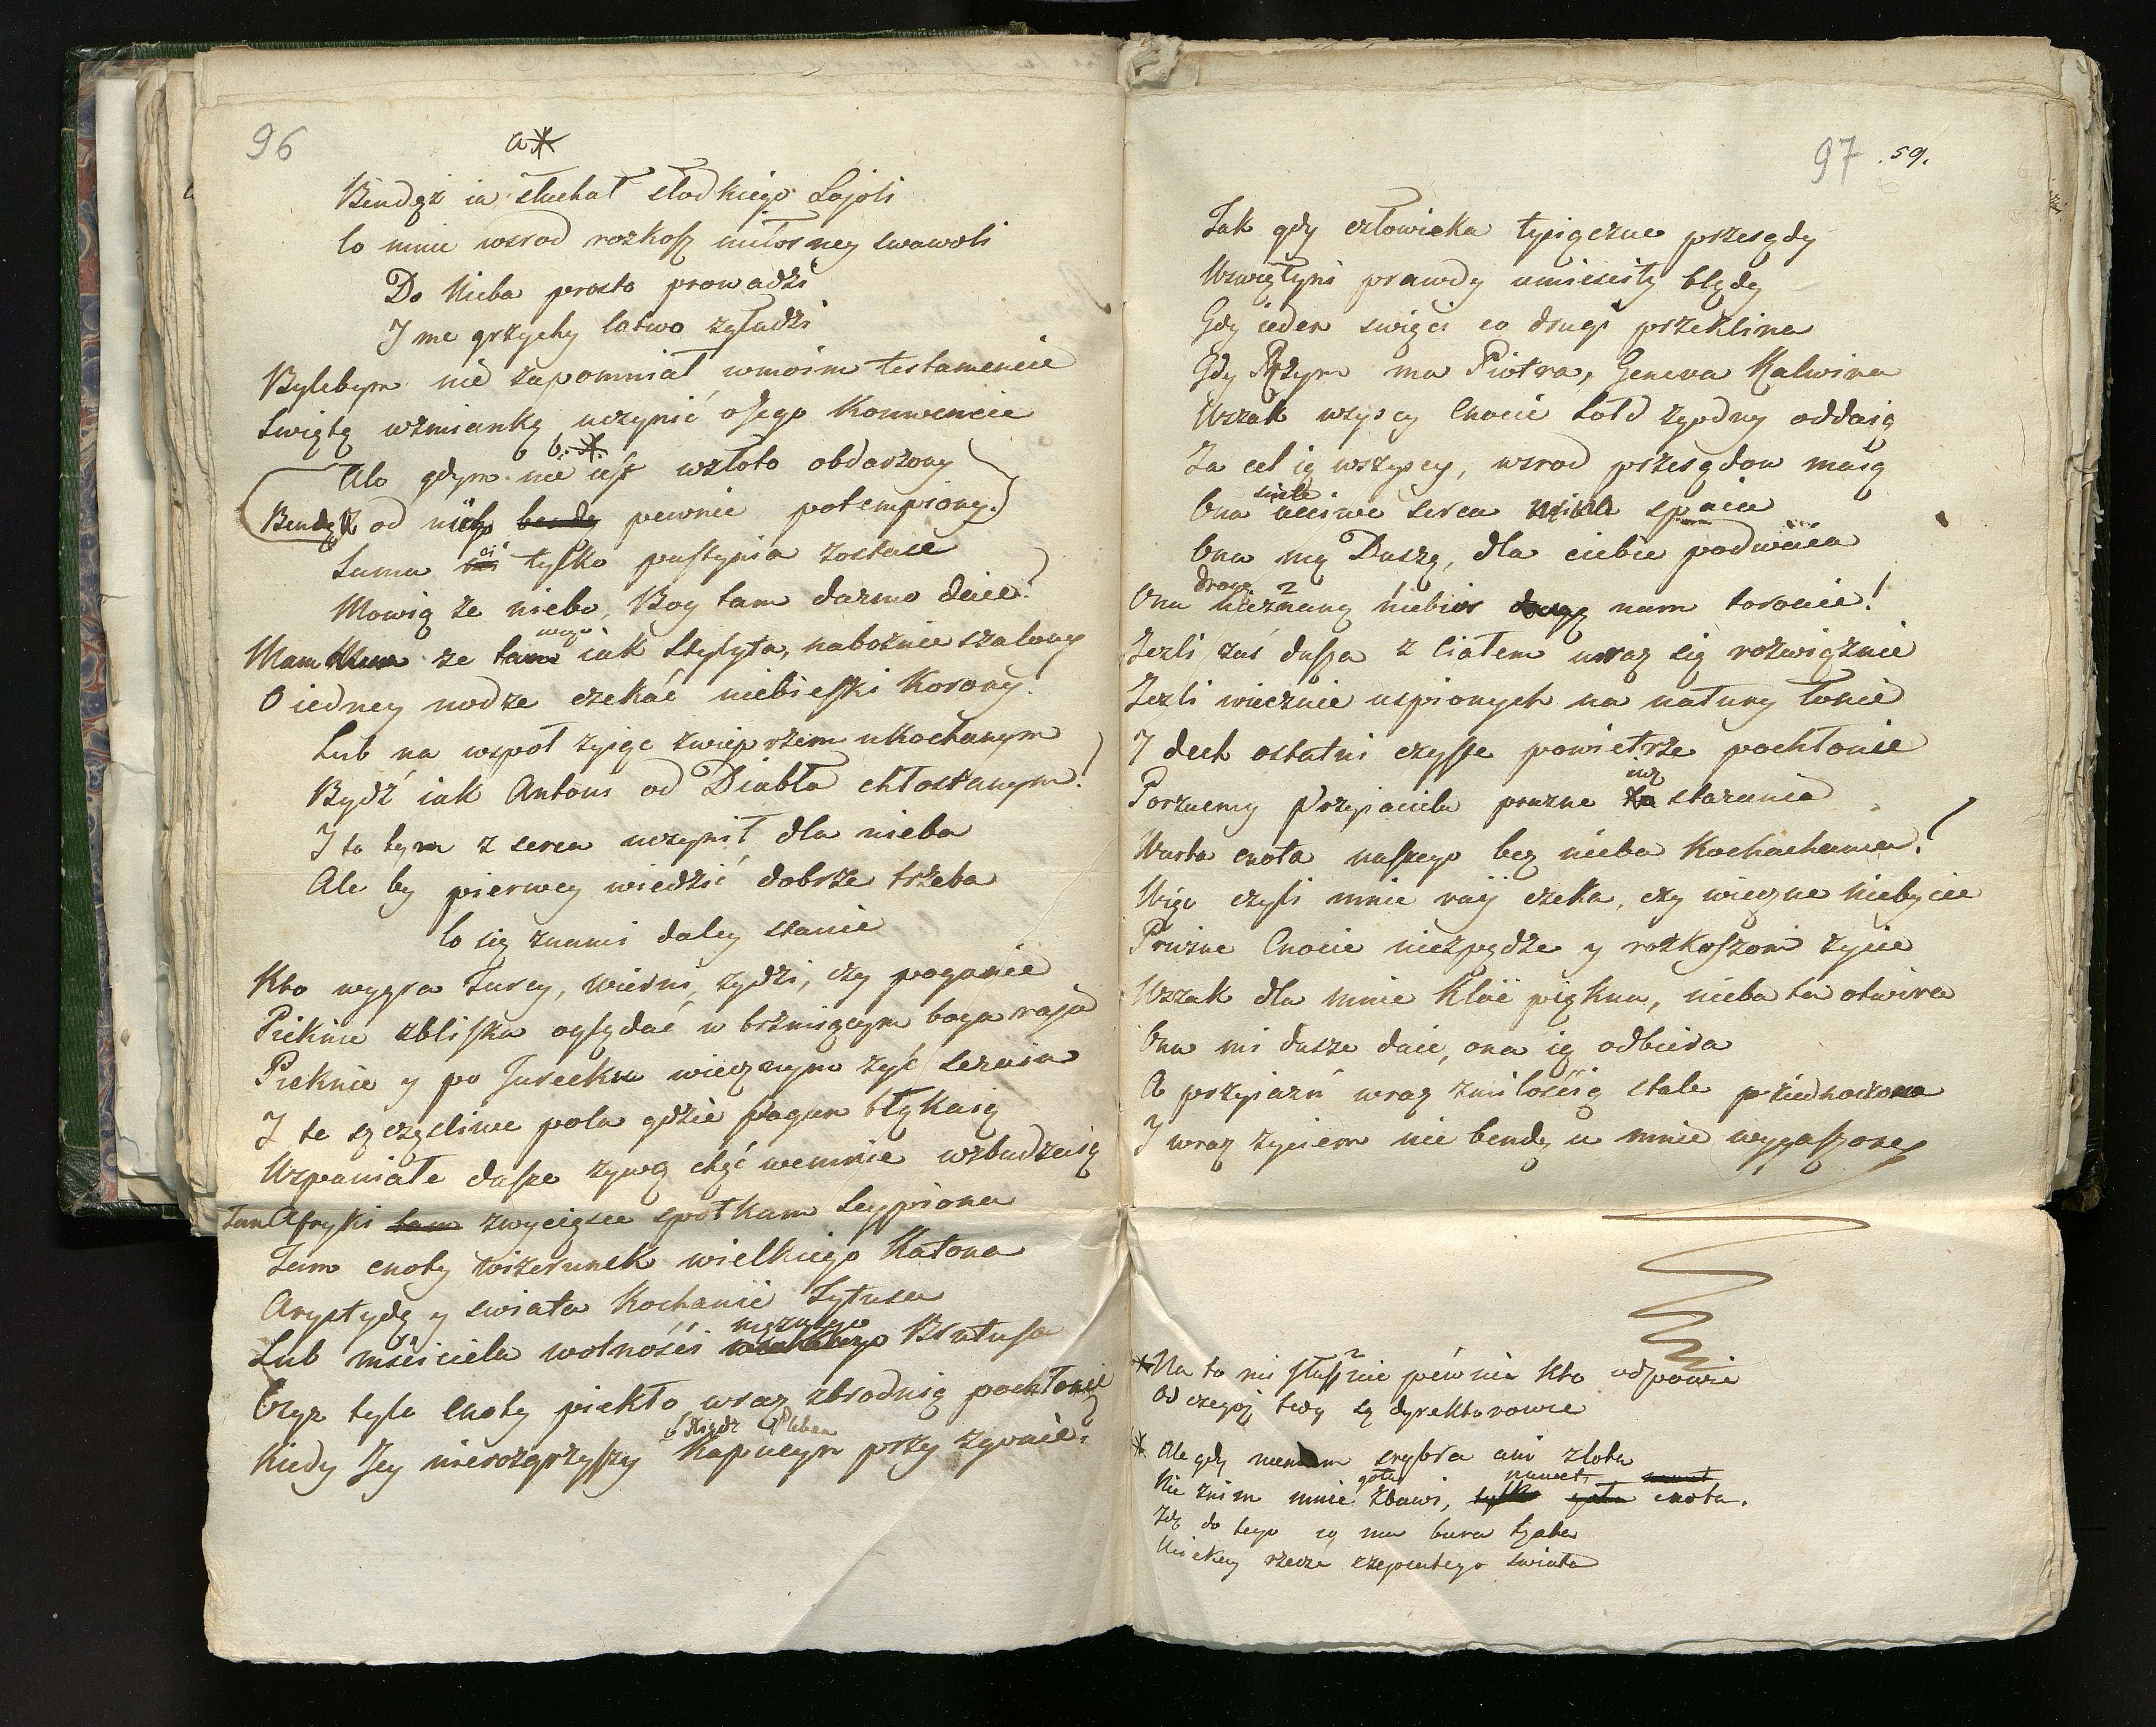 96
a*
Bendąż ia słuchał słodkiego Lojoli
Co mnie wsrod rozkosz miłosney swawoli
Do Nieba prosto prowadzi
I me grzychy łatwo zgładzi
Bylebym nie zapomniał wmoim testamencie
Swiętą wzmiankę uczynić o Jego Konwencie
b. *
Ale gdym nie iest wzłoto obdarzony
Bendę od nich bendę pewnie potempiony.
Sama mi ci tylko pustynia zostaie
Mowią że niebo, Bog tam darmo daie!
Mam że tam mego iak Stylyta, nabożnie szalony
O iedney nodze czekać niebieski Korony.
Lub na wspoł zyiąc zwieprzem ukochanym
Bydź iak Antoni od Diabła chłostanym!
I to bym z serca uczynił dla nieba
Ale by pierwey wiedzić dobrze trzeba
Co się znami daley stanie
Kto wygra Turcy, wierni, zydzi, czy poganie
Pieknie zbliska oglydać w brzmiącym boga raju
Pieknie y po Turecku wiecznym zyć seraiu
I te szczęsliwe pola gdzie pogan błąkaią
Wspaniałe dusze zywą chęć wemnie wzbudzaią
Tam Afryki tam zwycięsce spotkam Scypiona
Tam cnoty wizerunek wielkiego Katona
Arystydę y swiata Kochanie Tytusa
Lub mściciela wolności mężnego Brutusa
Czyz tyle cnoty piekło wraz zbrodnią pochłonie
Kiedy Jey nierozgrzyszy Xiądz Pleban Kapucym przy zgonie.
97 .59.
Tak gdy człowieka tysiączne przesądy
Wswiątyni prawdy umiesciły błędy
Gdy ieden swięci co drugi przeklina
Gdy Rzym ma Piotra, Geneva Kalwina
Wszak wszyscy Cnocie hołd zgodny oddaią
Za cel ią wszyscy, wsrod przesądow maią
Ona uczciwe serca scisle spaia
Ona mą Duszę, dla ciebie podwaia
Ona droge nieznaną niebios drogę nam toruie!
Jezli zaś dusza z Ciałem wraz się rozwiąznie
Jezli wiecznie uspionych na natury łonie
I dech ostatni czysse powietrze pochłonie
Porzucmy Przyiaciela prozne iuz starania
Warta cnota naszego bez nieba Kochachania!
Więc czyli mnie ray czeka, czy wieczne niebycie
Prozne Cnocie niezpędze y rozkoszom zycie
Wszak dla mnie Kloë piękna, nieba ta otwira
Ona mi dusze daie, ona ią odbiera
A przyiazń wraz zmilością stale przÿiednoczona
I wraz zyciem nie bendą u mnie wygaszone
* Na to mi słusznie pewnie kto odpowie
Od czegoz tedy są dyrektorowie
* Ale gdy niemam srybra ani złota
Nie znim mnie zbawi, goła nawet tylko goła cnota.
Idz do tego co ma bura łata
Niechay rzecze szepcutego swiata